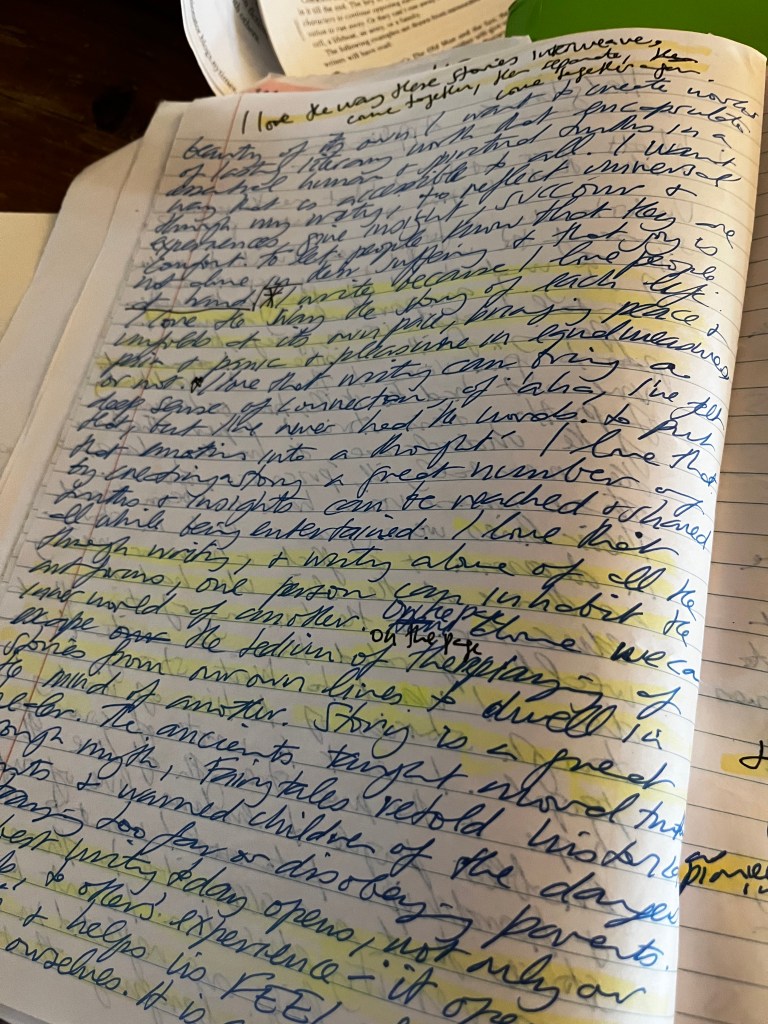 it till the end. The
characters to continue opposing
to run away. Or they can't run away
a lifeboat, an army, or a family.
The following examples are drawn from
writers will have read.
The Old Man and the Sea,
I love the way these stories interweave,
come together, then separate, then
come together again
beauty of its own. I want to create works
of lasting literary worth that encapsulates
essential human & mystical truths in a
way that is accessible to all. I want
through my writing, to reflect universal
experiences, give insight, succour &
comfort. to let people know that they are
not alone in their suffering & that joy is
at hand. I write because I love people
I love the way the story of each life
unfolds at its own pace, bringing peace &
pain & panic & pleasure in equal measures
or not. I love that writing can bring a
deep sense of connection, of 'aha, I've felt
that, but I've never had the words to put
that emotion into a thought.' I love that
by creating a story a great number of
truths & insights can be reached & shared
all while being entertained. I love that
through writing, & writing alone of all the
art forms, one person can inhabit the
inner world of another. On the page alone we ca
escape the tedium of the playing of
on the page
stories from our own lives & dwell in
the mind of another. Story is a great
The ancients taught moral truth
through myth, Fairytales retold histor
& warned children of the danger
too far or disobeying parents.
best writing today opens, not only our
& offers experience – it ope
& helps us FEEL
ourselves. It is